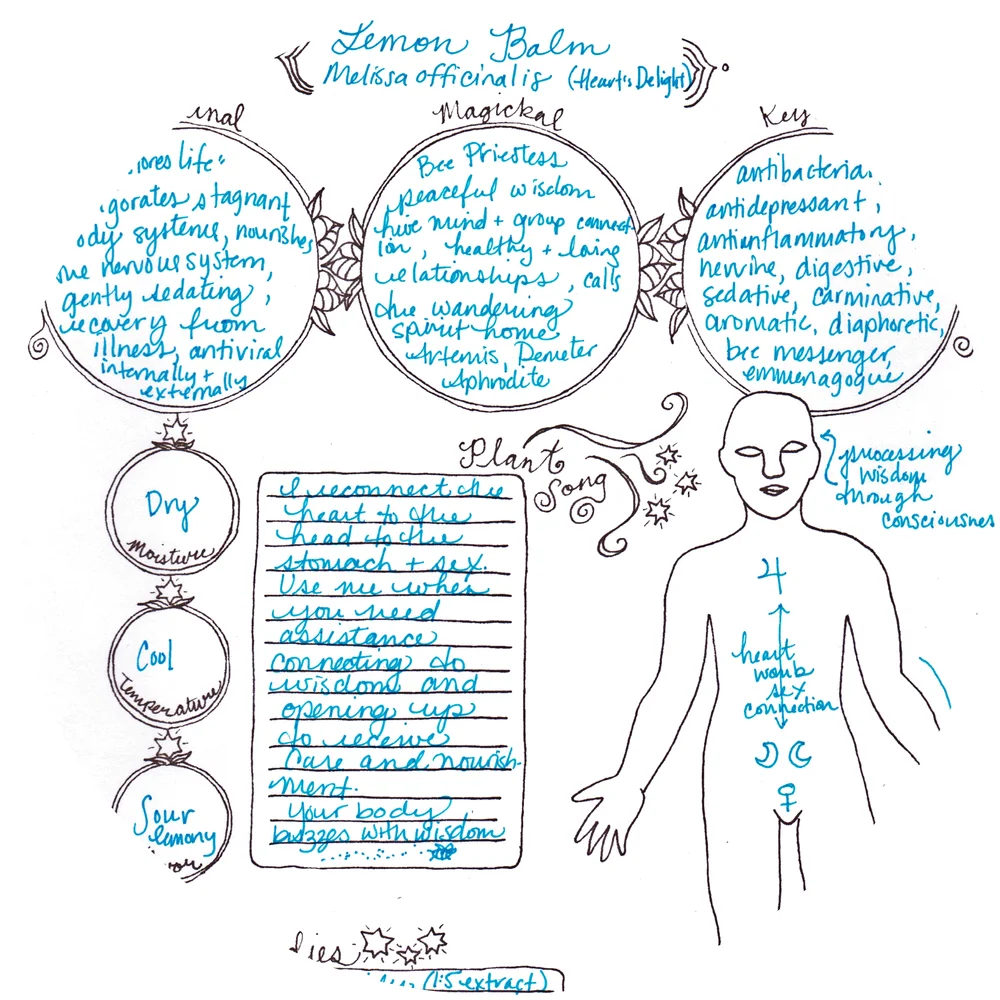 Lemon Balm
Melissa officinalis (Heart's Delight)
inal
ores life"
gorates stagnant
ody systems, nourishes
nervous system,
gently sedating,
recovery from
illness, antiviral
internally +
externally
Magickal
Bee Priestess
peaceful wisdom
hive mind + group connect-
ion, healthy + loving
relationships, calls
the wandering
spirit home
Artemis, Demeter
Aphrodite
Key
antibacteria
antidepressant,
antiinflammatory,
nervine, digestive,
sedative, carminative,
aromatic, diaphoretic,
bee messenger,
emmenagogue
Dry
Moisture
Cool
Temperature
Sour
lemony
or
Plant
Song
I reconnect the
heart to the
head to the
stomach + sex.
Use me when
you need
assistance
connecting to
wisdom and
opening up
to receive
Care and nourish-
ment.
Your body
buzzes with wisdom
processing
wisdom
through
consciousnes
♃
heart
womb
sex
connection
☽ ☾
♀
dies
(1:5 extract)